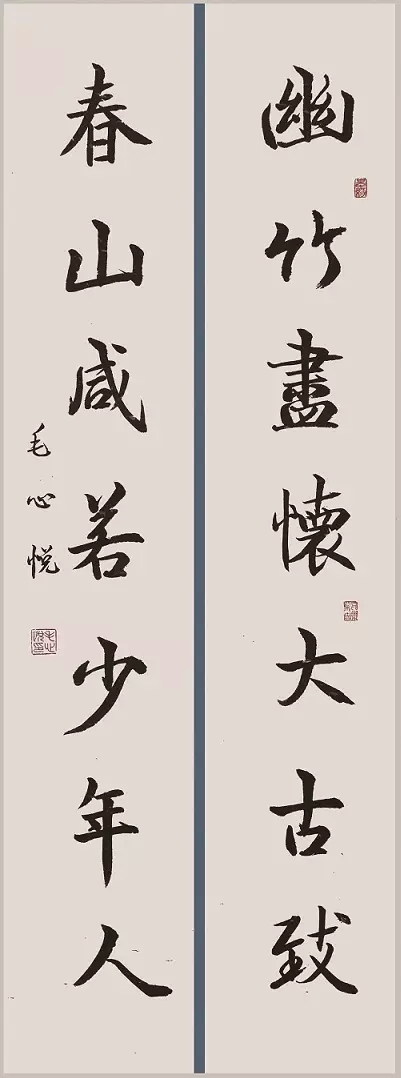 幽竹盡懷大古致
春山咸若少年人
毛心悅